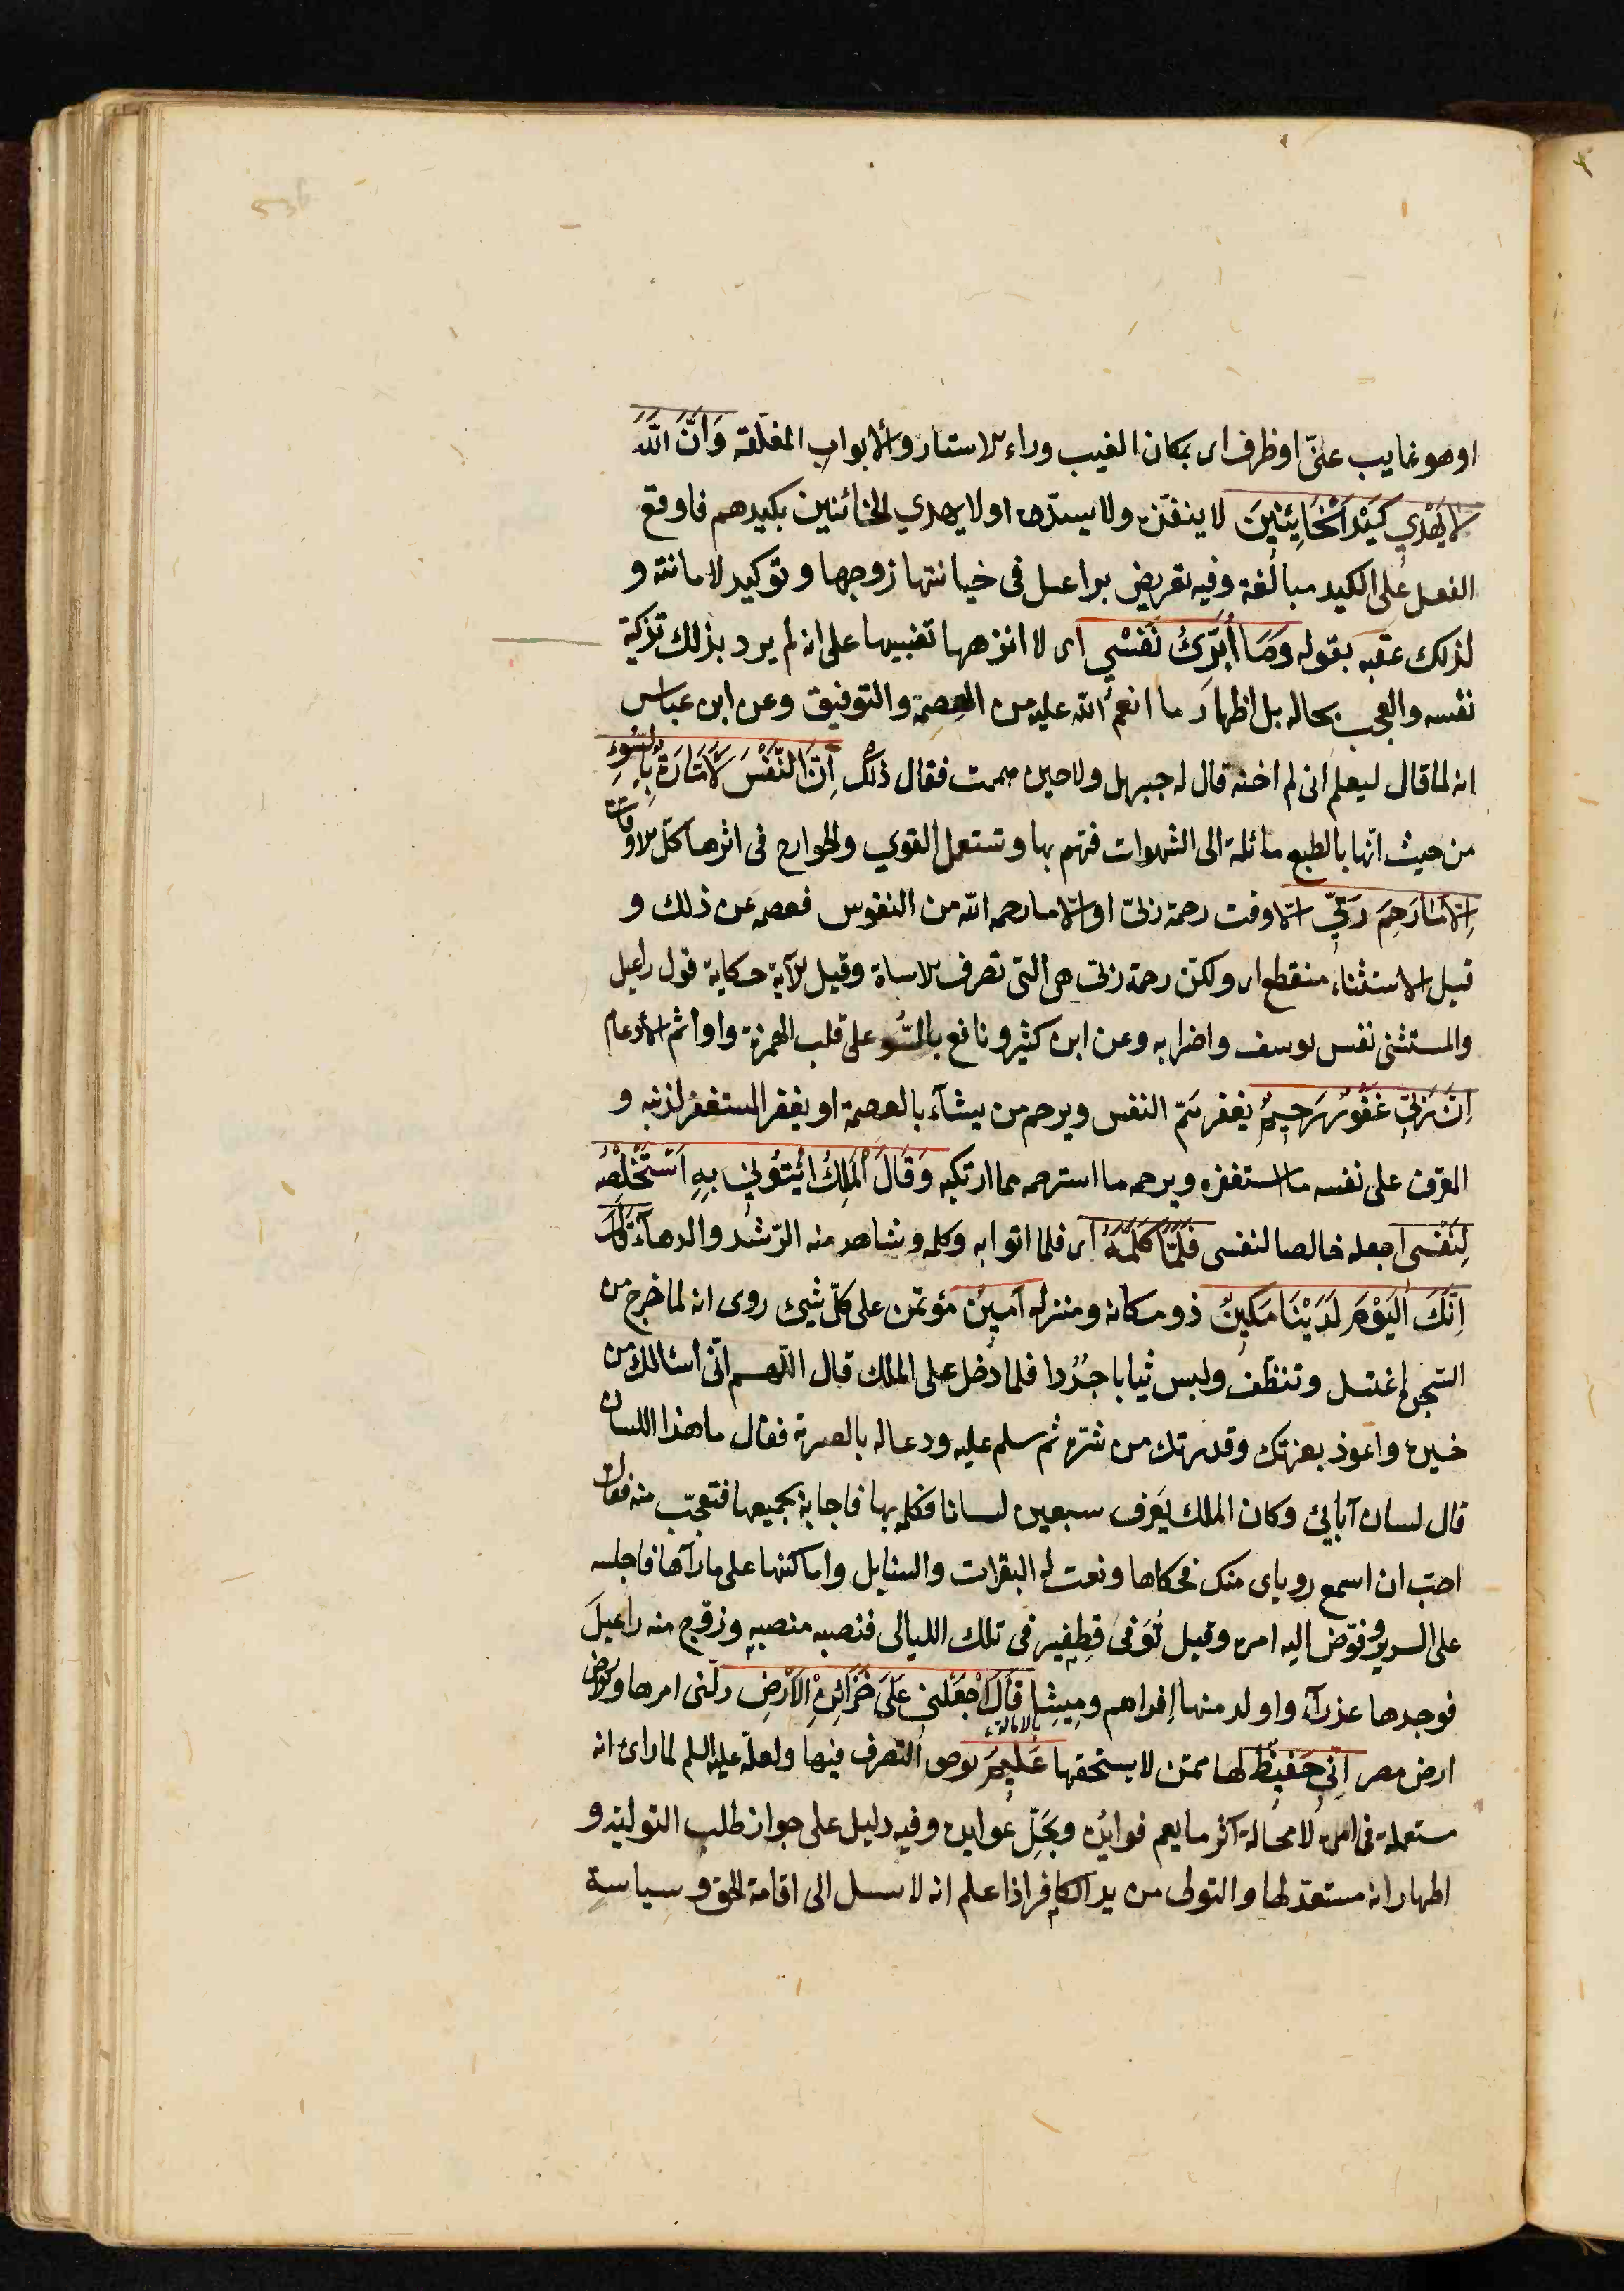 او هو غايب عنّى او ظرف اى بمكان الغيب وراء الاستار والأبواب المغلّقة وَاَنَّ اللّٰهَ
لَا يَهْدِي كَيْدَ الْخَايِنِينَ لا ينفذه ولا يسدّده او لا يهدي الخائنين بكيدهم فاوقع
الفعل على الكيد مبالغة وفيه تعريض براعيل فى خيانتها زوجها وتوكيد لامانته و
لذلك عقبه بقوله وَمَا أُبَرِّئُ نَفْسِي اى لا انزهها تنبيها على انه لم يرد بذلك تزكية
نفسه والعجب بحاله بل اظهارَ ما انعم الله عليه من العصمة والتوفيق وعن ابن عباس
انه لما قال ليعلم انى لم اخنه قال له جبريل ولا حين هممت فقال ذلك اِنَّ النَّفْسَ لَاَمَّارَةٌ بِالسُّوءِ
من حيث انّها بالطبع مائلة الى الشهوات فتهم بها وتستعمل القوي والجوارح فى اثرها كلّ الاوقات
اِلَّا مَا رَحِمَ رَبِّي الّا وقت رحمة ربّى او الّا ما رحمه الله من النفوس فعصمه عن ذلك و
قيل الاستثناء منقطع اى ولكن رحمة ربّى هى التى تصرف الاساة وقيل الآية حكاية قول راعيل
والمستثنى نفس يوسف واضرابه وعن ابن كثير ونافع بالسُّو على قلب الهمزة واوا ثم الأدغام
اِنَّ رَبِّي غَفُورٌ رَحِيمٌ يغفر همّ النفس ويرحم من يشآء بالعصمة او يغفر للمستغفر لذنبه و
المعترف على نفسه ما استغفره ويرحمه ما استرحمه مما ارتكبه وَقَالَ الْمَلِكُ ائْتُونِي بِهِ اَسْتَخْلِصْهُ
لِنَفْسِى اجعله خالصا لنفسى فَلَمَّا كَلَّمَهُ اى فلما اتوا به وكلمه وشاهد منه الرّشد والدهآء قَالَ
اِنَّكَ الْيَوْمَ لَدَيْنَا مَكِينٌ ذو مكانة ومنزلة اَمِينٌ مؤتمن على كلّ شئ روى انه لما خرج من
السّجن اغتسل وتنظّف ولبس ثيابا جُدُدا فلما دخل على الملك قال اللّهم انّى اسئالك من
خيره واعوذ بعزتك وقدرتك من شرّه ثم سلم عليه ودعا له بالعبرية فقال ما هذا اللسان
قال لسان آبائى وكان الملك يَعرف سبعين لسانا فكلمه بها فاجابه بجميعها فتعجّب منه فقال
احبّ ان اسمع روياى منك فحكاها ونعت له البقرات والسنابل واماكنها على ما رآها فاجلسه
على السرير وفوّض اليه امره وقيل تُوَفى قِطفِير فى تلك الليالى فنصبه منصبه وزوّج منه راعيلَ
فوجدها عذرآء واولد منها إفراهم ومِيشا قَالَ اجْعَلْنِي عَلَىٰ خَزَائِنِ الْاَرْضِ ولّنى امرها والارض
ارض مصر اِنِّي حَفِيظٌ لها ممّن لا يستحقها عَلِيمٌ بوجوه التصرف فيها ولعلّه عليه السلم لما راى انه
بالامالة
يستعمله فى امره لا محالة آثر ما يعم فوايُده ويَجَلّ عوايده وفيه دليل على جواز طلب التولية و
اظهار انه مستعدّ لها والتولى من يد الكافر اذا علم انه لا سبيل الى اقامة الحق وسياسةِ